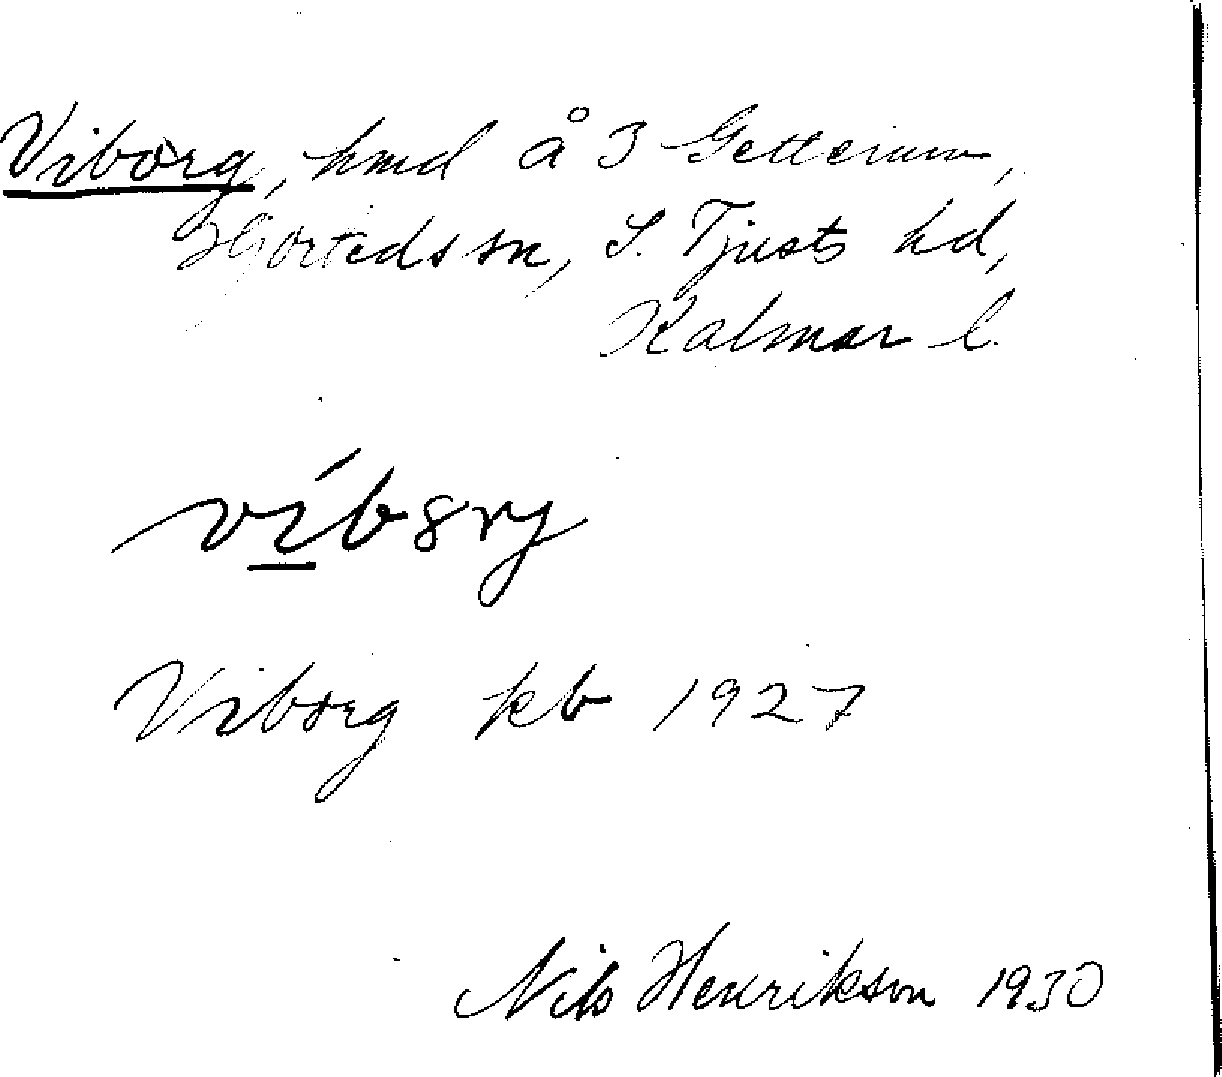 Viborg, hmd å 3 Getterum,
Hjorteds sn, S. Tjusts hd,
Kalmar l.
ví̲b8rj
Viborg kb 1927
Nils Henrikson 1930